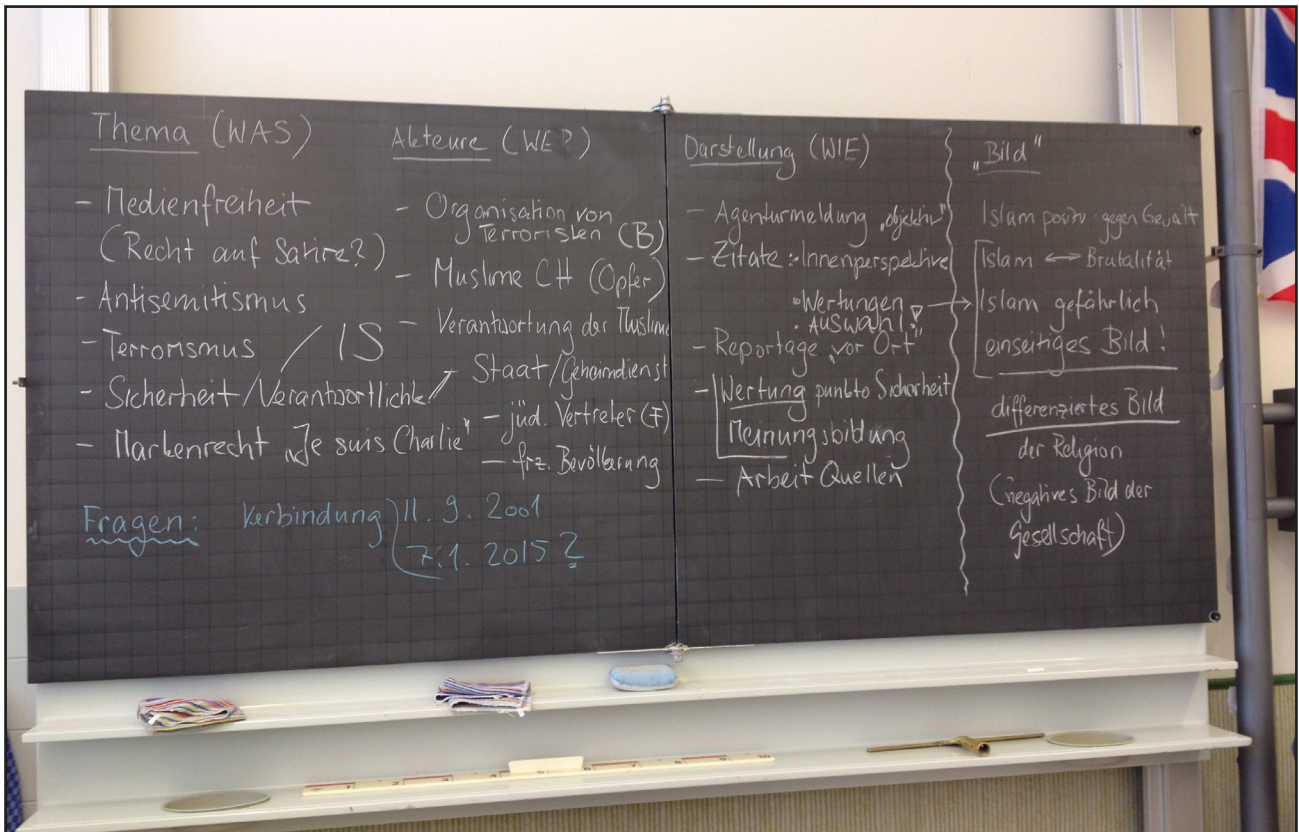 Thema (WAS)
- Medienfreiheit
(Recht auf Satire?)
- Antisemitismus
- Terrorismus / IS
- Sicherheit/Verantwortlichk
- Markenrecht „Je suis Charlie"
Fragen: Verbindung 11. 9. 2001
7.1. 2015?
Akteure (WER)
- Organisation von
Terroristen (B)
- Muslime CH (Opfer)
- Verantwortung der Muslime
- Staat/Geheimdienst
- jüd. Vertreter (F)
- frz. Bevölkerung
Darstellung (WIE)
- Agenturmeldung „objektiv"
- Zitate: • Innenperspektive
• Wertungen
• Auswahl!
- Reportage „vor Ort"
- Wertung punkto Sicherheit
Meinungsbildung
- Arbeit Quellen
„Bild"
Islam positiv: gegen Gewalt
Islam ↔ Brutalität
Islam gefährlich
einseitiges Bild!
differenziertes Bild
der Religion
(negatives Bild der
Gesellschaft)
1 2 3 4 5 6 7 8 9 10